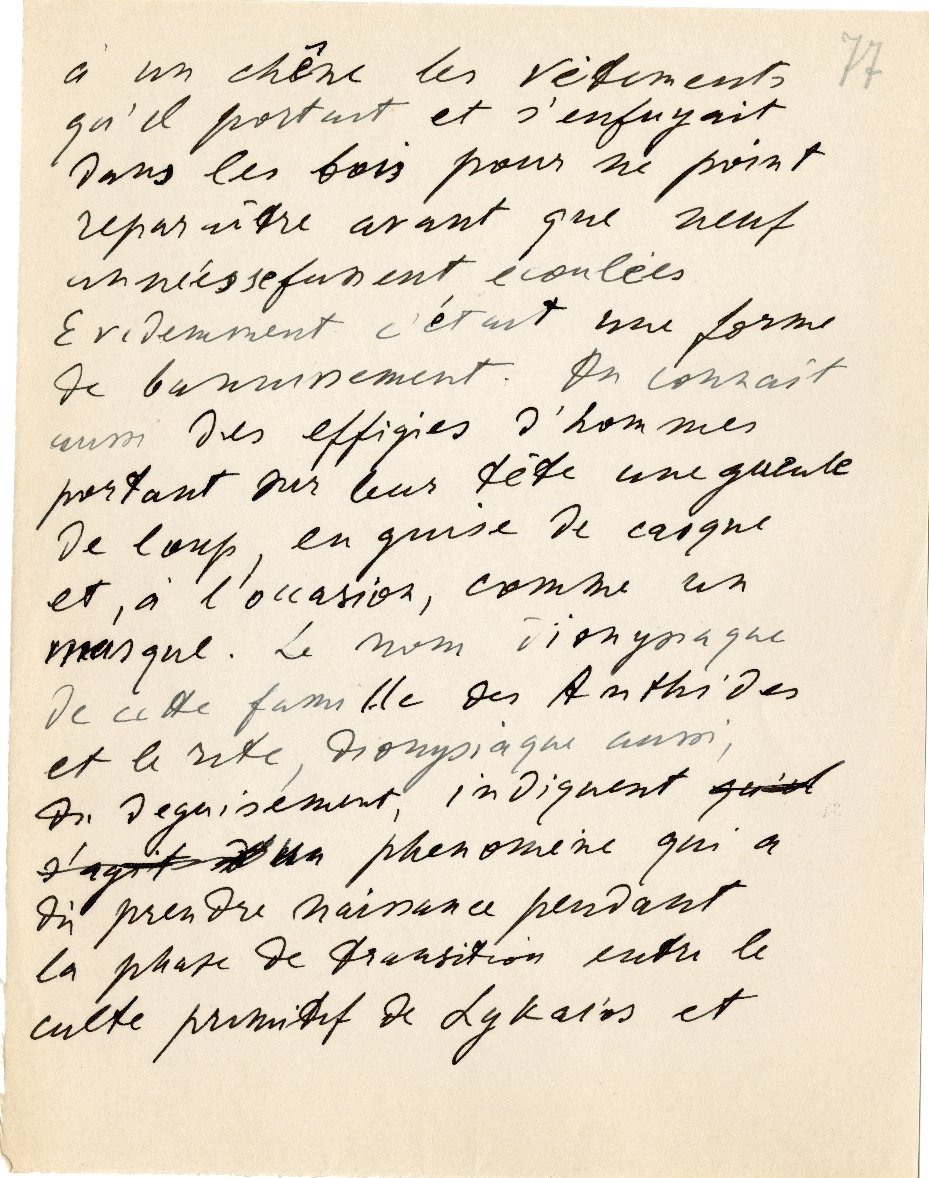 77
à un chêne les vêtements
qu'il portait et s'enfuyait
dans les bois pour ne point
reparaître avant que neuf
années se fussent écoulées
Evidemment c'était une forme
de bannissement. On connaît
aussi des effigies d'hommes
portant sur leur tête une gueule
de loup, en guise de casque
et, à l'occasion, comme un
masque. Le nom dionysiaque
de cette famille des Anthides
et le rite, dionysiaque aussi,
du deguisement, indiquent qu'il
s'agit d'un phenomène qui a
dû prendre naissance pendant
la phase de transition entre le
culte primitif de Lykaios et